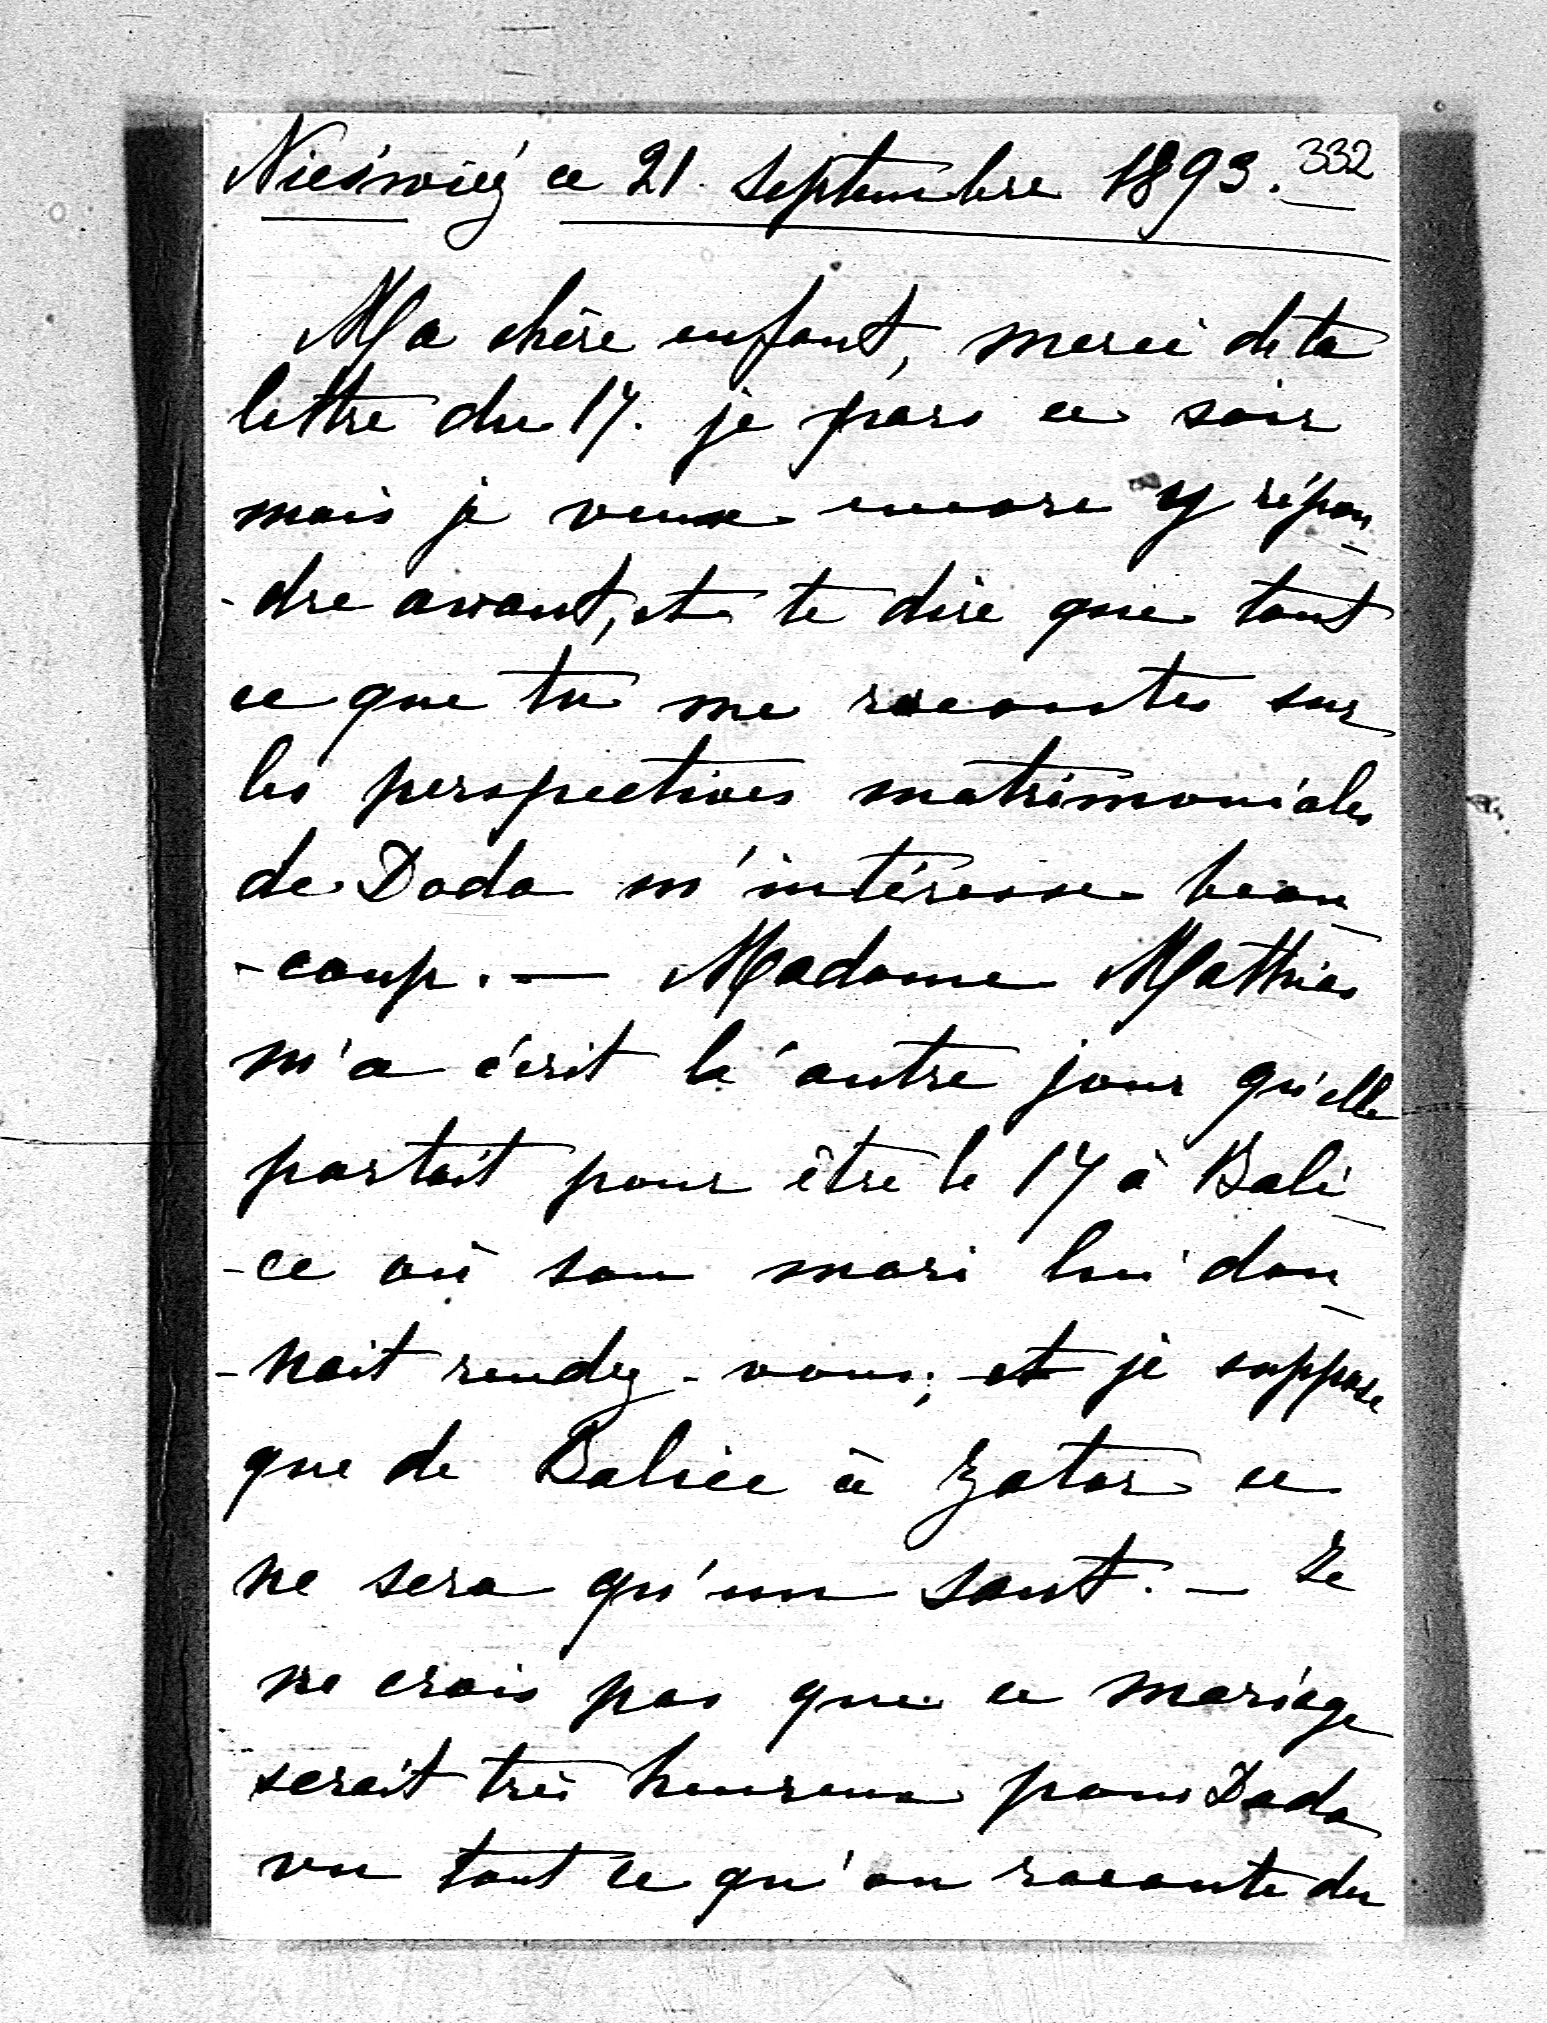 Nieświéź ce 21. Septembre 1893. 332
Ma chère enfant, merci de ta
lettre du 17. je pars ce soir
mais je veux encore y répon
-dre avant, et te dire que tout
ce que tu me racontes sur
les perspectives matrimoniales
de Doda m'intéresse beau
-coup. — Madame Mathias
m'a écrit l'autre jour qu'elle
partait pour être le 17 à Bali
-ce où son mari lui don
-nait rendez-vous; et je suppose
que de Balice à Zator ce
ne sera qu'un saut. — Je
ne crois pas que ce mariage
serait très heureux pour Doda
vu tout ce qu'on raconte du